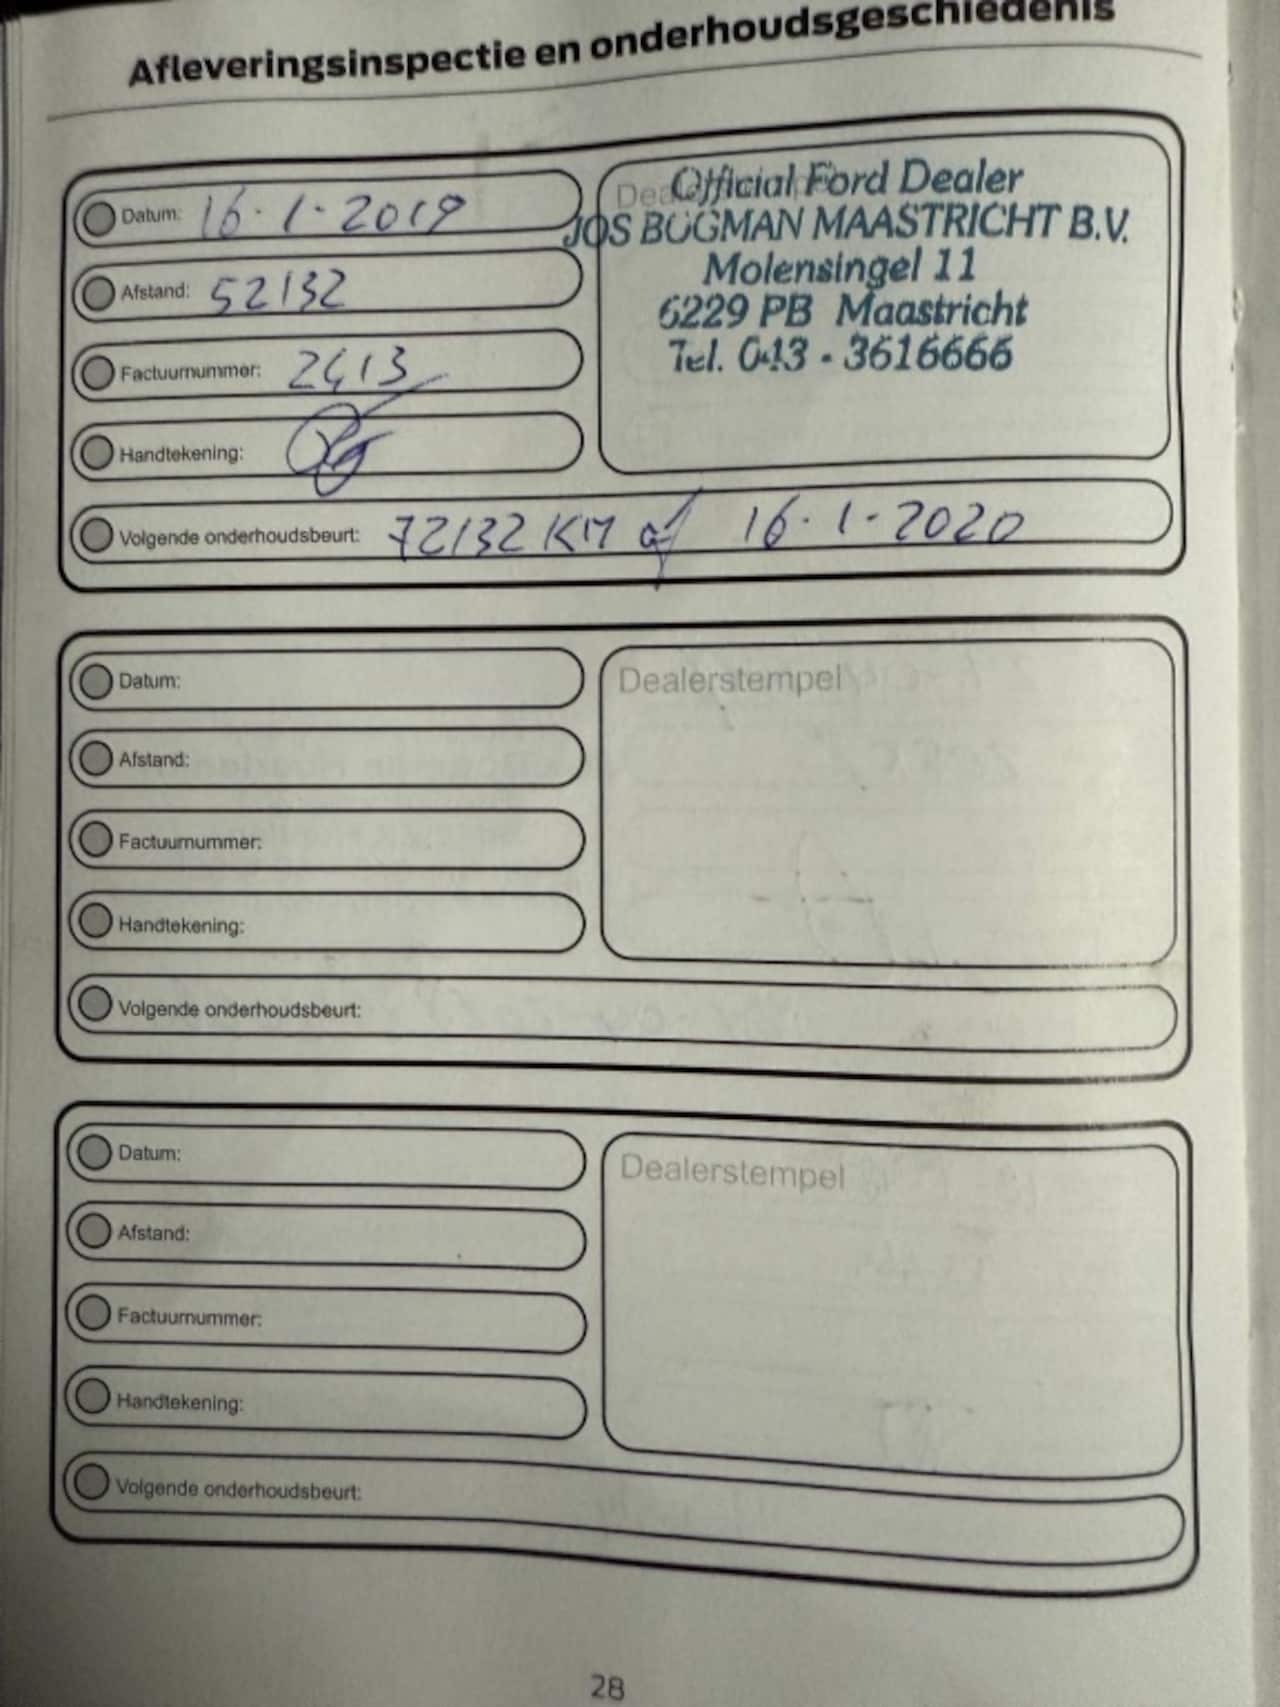 Afleveringsinspectie en onderhoudsgeschiedenis
Datum: 16-1-2019
Afstand: 52132
Factuurnummer: 2413
Handtekening:
Volgende onderhoudsbeurt: 72132 KM of 16-1-2020
Official Ford Dealer
JOS BOGMAN MAASTRICHT B.V.
Molensingel 11
6229 PB Maastricht
Tel. 043 - 3616666
Datum:
Afstand:
Factuurnummer:
Handtekening:
Volgende onderhoudsbeurt:
Dealerstempel
Datum:
Afstand:
Factuurnummer:
Handtekening:
Volgende onderhoudsbeurt:
Dealerstempel
28